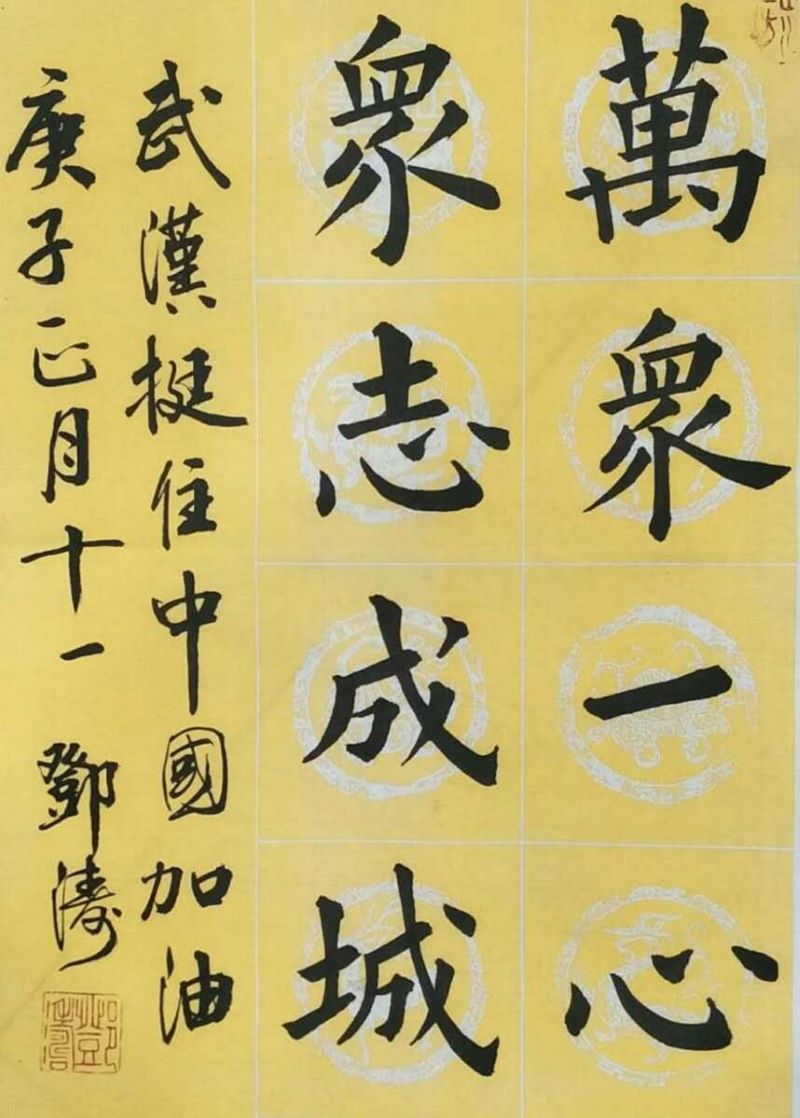 萬眾一心
眾志成城
武漢挺住中國加油
庚子正月十一 鄧濤